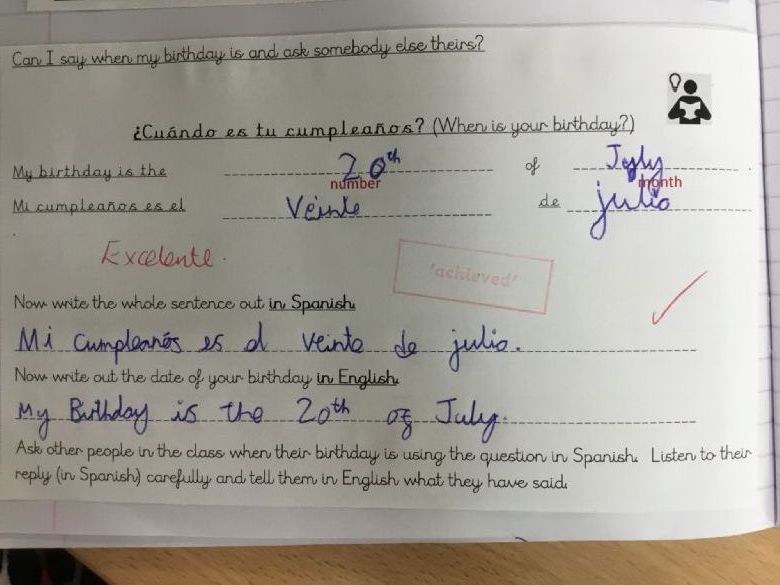 Can I say when my birthday is and ask somebody else theirs?
¿Cuándo es tu cumpleaños? (When is your birthday?)
My birthday is the 20th of July
number month
Mi cumpleaños es el Veinte de julio
Excelente.
'achieved'
Now write the whole sentence out in Spanish.
Mi cumpleanós es el veinte de julio.
Now write out the date of your birthday in English.
My Birthday is the 20th of July.
Ask other people in the class when their birthday is using the question in Spanish. Listen to their
reply (in Spanish) carefully and tell them in English what they have said.